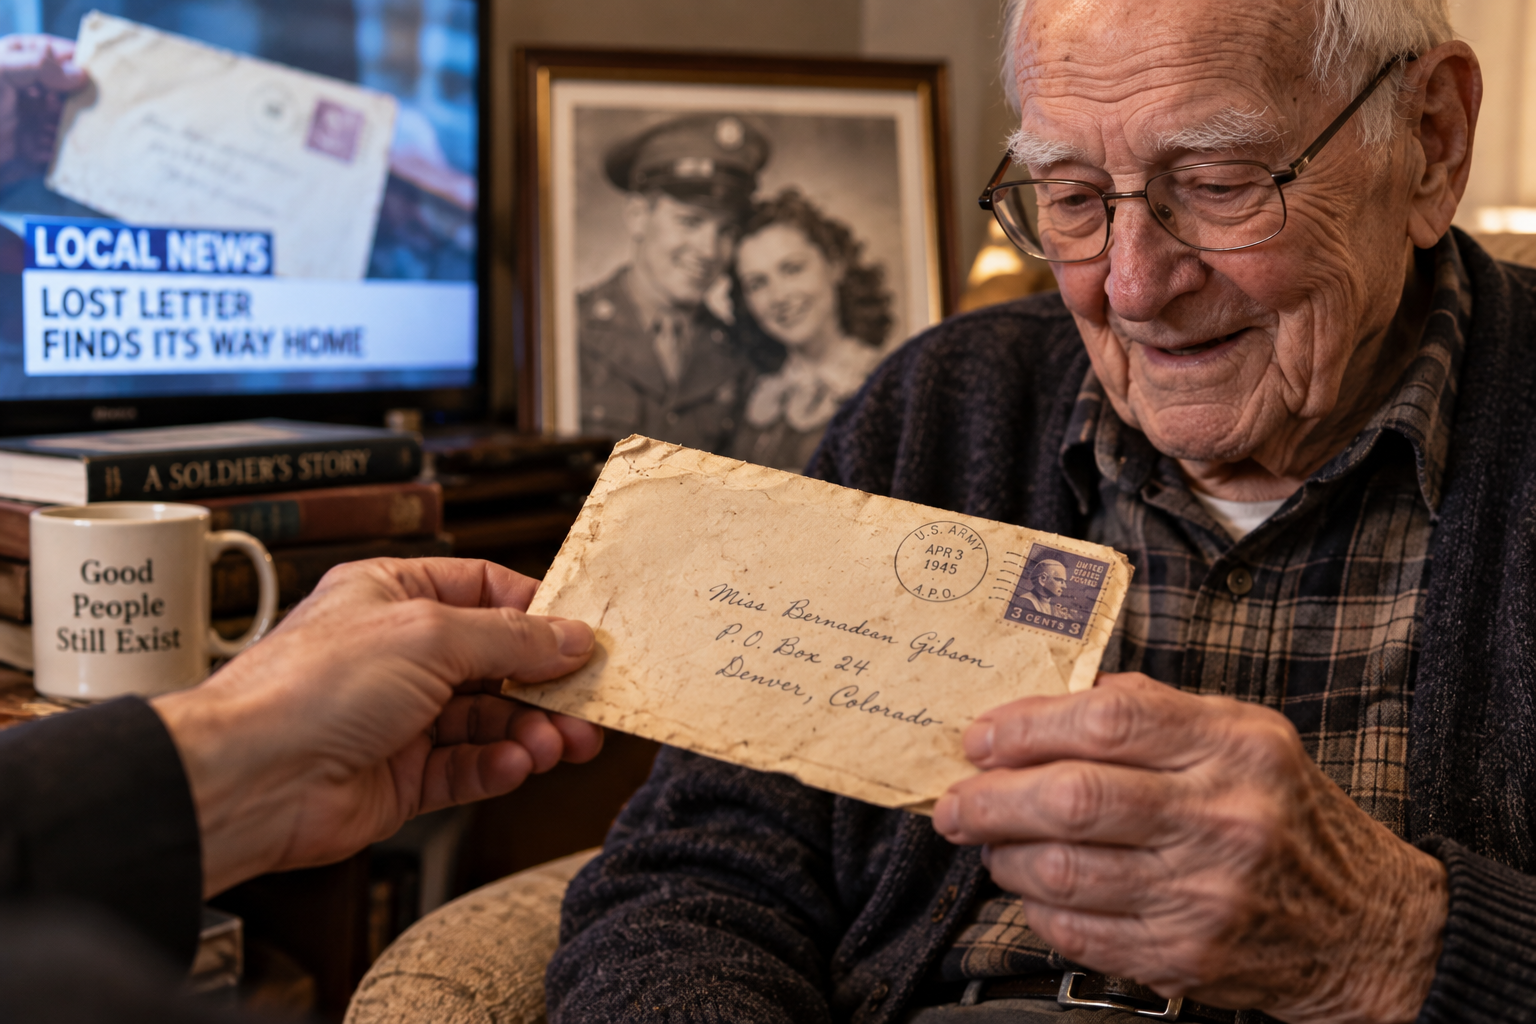 LOCAL NEWS
LOST LETTER
FINDS ITS WAY HOME
A SOLDIER'S STORY
Good
People
Still Exist
U.S. ARMY
APR 3
1945
A.P.O.
UNITED
STATES
POSTAGE
3 CENTS 3
Miss Bernadean Gibson
P.O. Box 24
Denver, Colorado